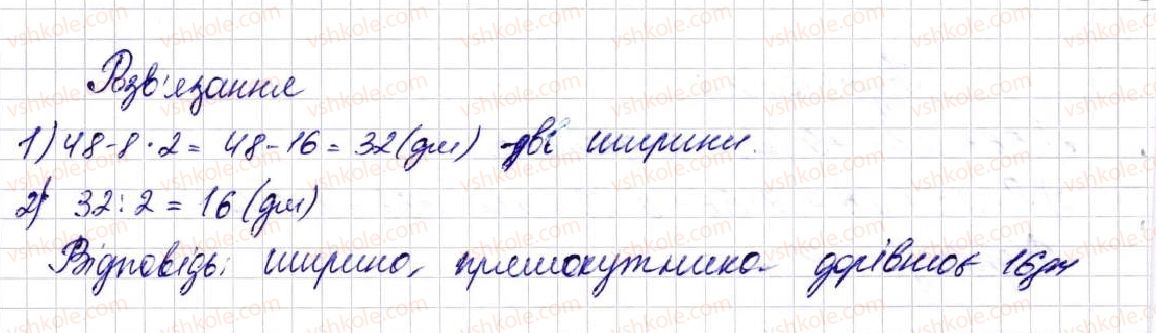 Розв'язання
1) 48-8·2= 48-16=32(дм) - дві ширини.
2) 32:2=16(дм)
Відповідь: ширина прямокутника дорівнює 16дм